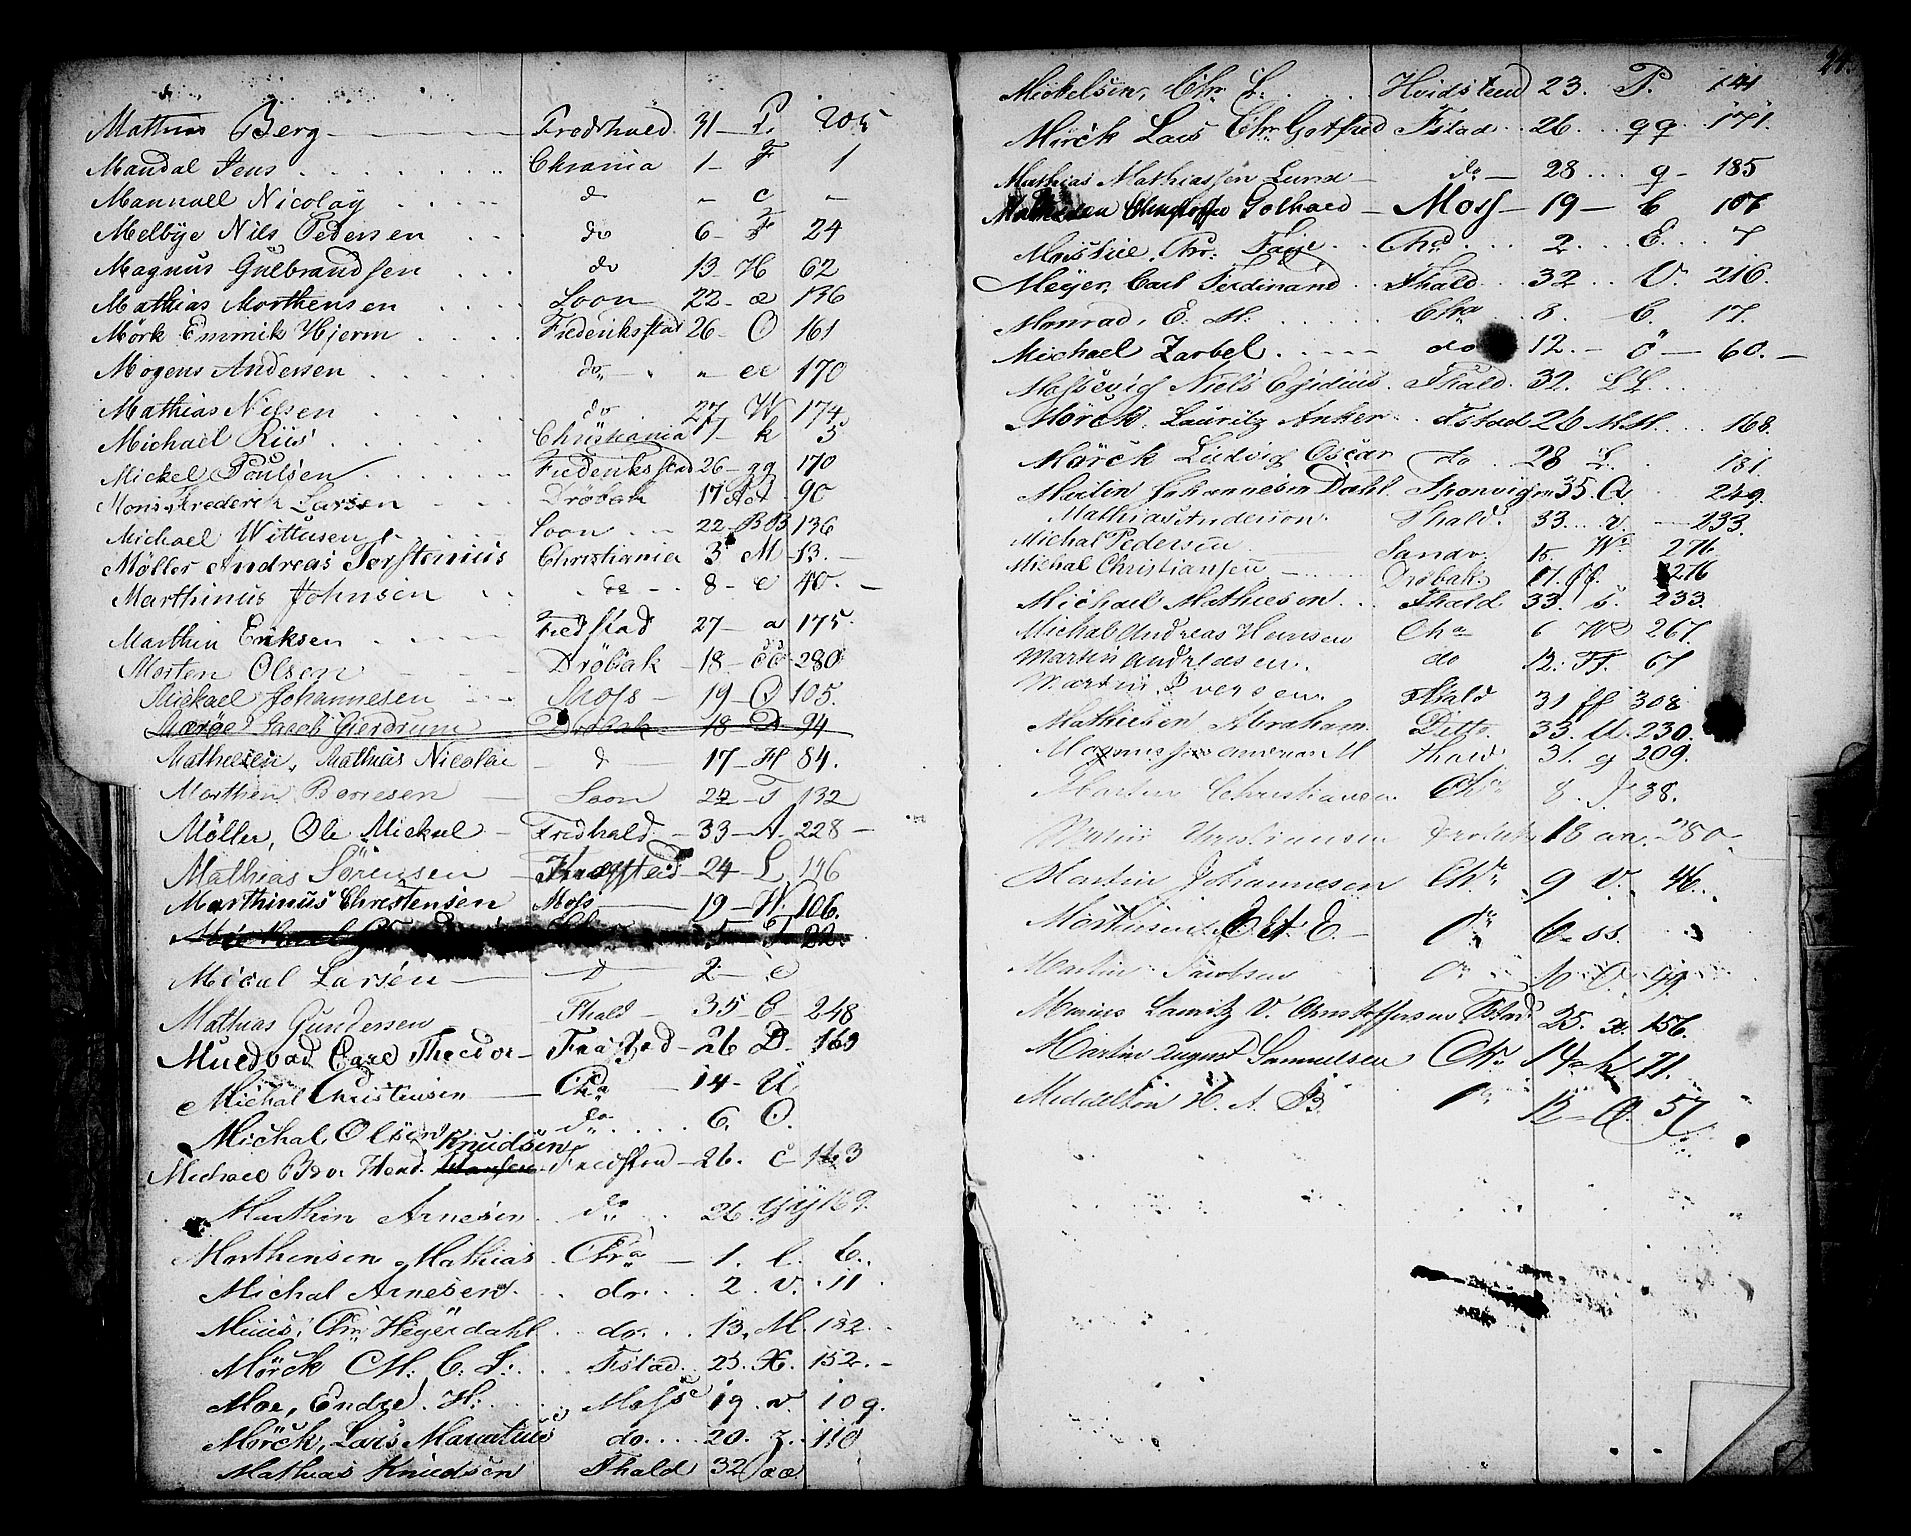 Mathias Berg Fredrhald 31 P. 205
Mandal Jens Chrania 1 F 1
Manuall Nicolay do " c "
Melbÿe Nils Pedersen do 6 F 24
Magnus Gulbrandsen do 13 H 62
Mathias Morthensen Soon 22 æ 136
Mörk Emmik Hjerm Frederiksstad 26 O 161
Mogens Andersen do " ee 170
Mathias Nilsen do 27 W 174
Michael Riis Christiania 1 k 5
Mickel Poulsen Frederiksstad 26 gg 170
Mons Frederek Larsen Dröbak 17 AA 90
Michael Wittusen Soon 22 BB 136
Möller Andreas Torstenius Christiania 3 M 13.
Marthinus Johnsen do 8 e 40.
Marthin Eriksen Fredstad 27 a 175
Morten Olsen Dröbak 18 cc 280
Mickael Johannesen Moss 19 O 105
Jacob Gierdrum Dröbak 18 D 94
Mathiesen, Mathias Nicolai d 17 H 84.
Morthen Borresen Soon 22 T 132
Möller, Ole Mickal Fredhald 33 A. 228
Mathias Sörensen 24 L 146
Marthinus Christensen Moss 19 W. 106.
5 T 22.
Mical Larsen D 2 e
Mathias Gundersen Fhald 35 C 248
Muedvad Carl Theodor Frdstad 26 D. 163
Michal Christensen Chra 14 U
Michal Olsen do 6. O.
Knudsen
Michael Hansen Fredsstad 26. c 163
Marthin Arnesen do 26. yy 169.
Morthensen Mathias Chra 1. l. 6.
Michal Arnesen do. 2. v. 11
Chr. Heÿerdahl do. 13. M. 182.
Mörck M. C. L. Fstad 25. X. 152.
Moe, Endre. H: Moss 19. v. 109.
Mörck, Lars Mauritius do. 20. z. 110
Mathias Knudsen Fhald 32 aa
24.
Mickelsen, Chr. L. Hvidsteen 23. P. 141
Mörck Lars Chr. Gotfred Fstad 26. qq. 171.
Mathias Mathiassen Lund do 28 q 185
Golhard Moss 19 b 107
Chra 2. E. 7
Meÿer, Carl Ferdinand Fhald 32 V. 216.
Monrad, E. M: Chra 3. C. 17.
Michael Zarbel do 12. ö 60.
Niels Egidius. Fhald. 32. LL.
Mörck, Lauritz Anker Fstad 26 MM. 168.
Mörck Ludvig Oscar do 28 L. 181.
Martin Johannesen Dahl. 35. A. 249.
Mathias Anderson. Fhald. 33. v. 233.
Michal Pedersen Sandv. 15. W 276
Michal Christiansen Dröbak. 17. ff. 276
Michael Mathiesen Fhald 33. s. 233.
Michal Andreas Hansen Chra 6 W 267.
Martin Andreasen. do 12. Ff. 67
Martin Iversen. Fhald 31 ff 308
Mathiesen Abraham. Ditto 33. U. 230.
Magnus Andreas M Fhald 31. g 209.
Martin Christiansen Chra 8. J 38.
Martin Christiansen Dröbak 18 an. 280
Martin Johannesen Chra 9 V. 46.
Morthensen E. A. E. do 6 ss.
Martin Jacobsen do
Marius Lauritz V. Christoffersen Fstad 25. æ. 156.
Martin August Samuelsen Chr. 14 k 71.
Middelton H. A. B. do 12 Q. 57